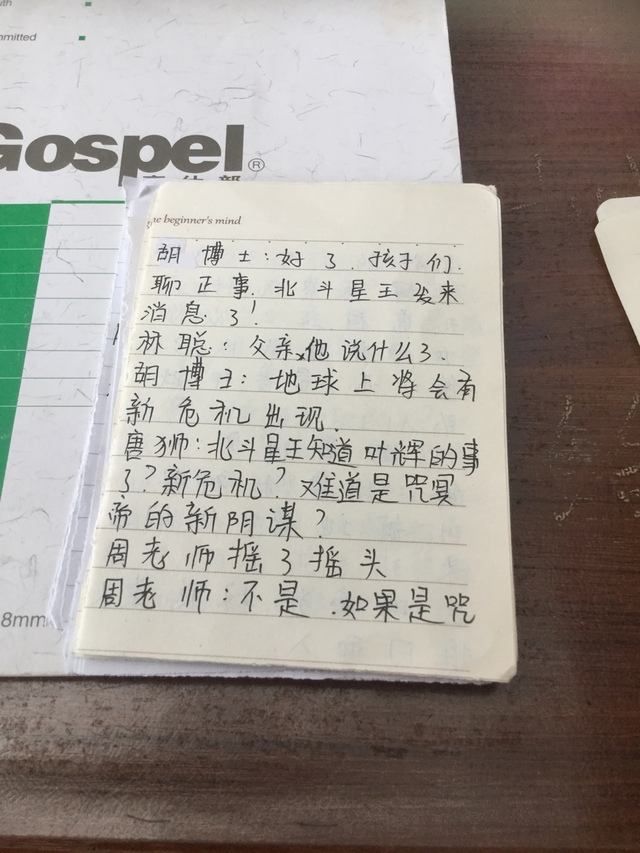 ith
mmitted
Gospel®
the beginner's mind
胡博士:好了.孩子们.
聊正事.北斗星王发来
消息了!
林聪:父亲,他说什么了.
胡博士:地球上将会有
新危机出现.
唐狮:北斗星王知道叶辉的事
了?新危机?难道是咒冥
帝的新阴谋?
周老师摇了摇头
周老师:不是.如果是咒
8mm